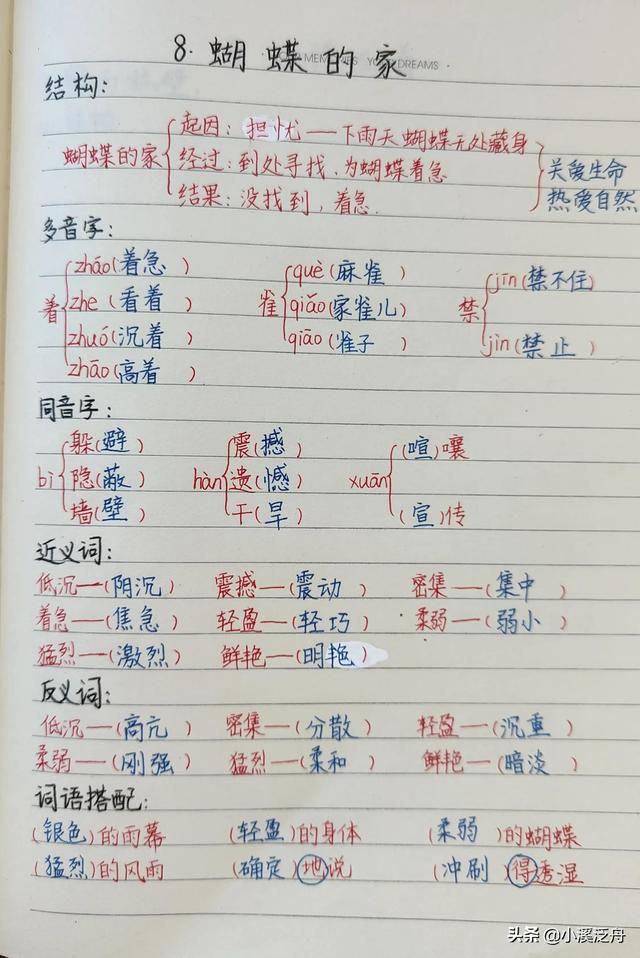 8. 蝴蝶的家
结构:
起因: 担忧——下雨天蝴蝶无处藏身
蝴蝶的家 经过: 到处寻找,为蝴蝶着急 关爱生命
结果: 没找到,着急. 热爱自然
多音字:
zháo(着急) què(麻雀) jīn(禁不住)
着 zhe(看着) 雀 qiǎo(家雀儿) 禁
zhuó(沉着) qiāo(雀子) jìn(禁止)
zhāo(高着)
同音字:
躲(避) 震(撼) (喧)嚷
bì 隐(蔽) hàn 遗(憾) xuān
墙(壁) 干(旱) (宣)传
近义词:
低沉—(阴沉) 震撼—(震动) 密集—(集中)
着急—(焦急) 轻盈—(轻巧) 柔弱—(弱小)
猛烈—(激烈) 鲜艳—(明艳)
反义词:
低沉—(高亢) 密集—(分散) 轻盈—(沉重)
柔弱—(刚强) 猛烈—(柔和) 鲜艳—(暗淡)
词语搭配:
(银色)的雨幕 (轻盈)的身体 (柔弱)的蝴蝶
(猛烈)的风雨 (确定)地说 (冲刷)得透湿
头条 @小溪泛舟